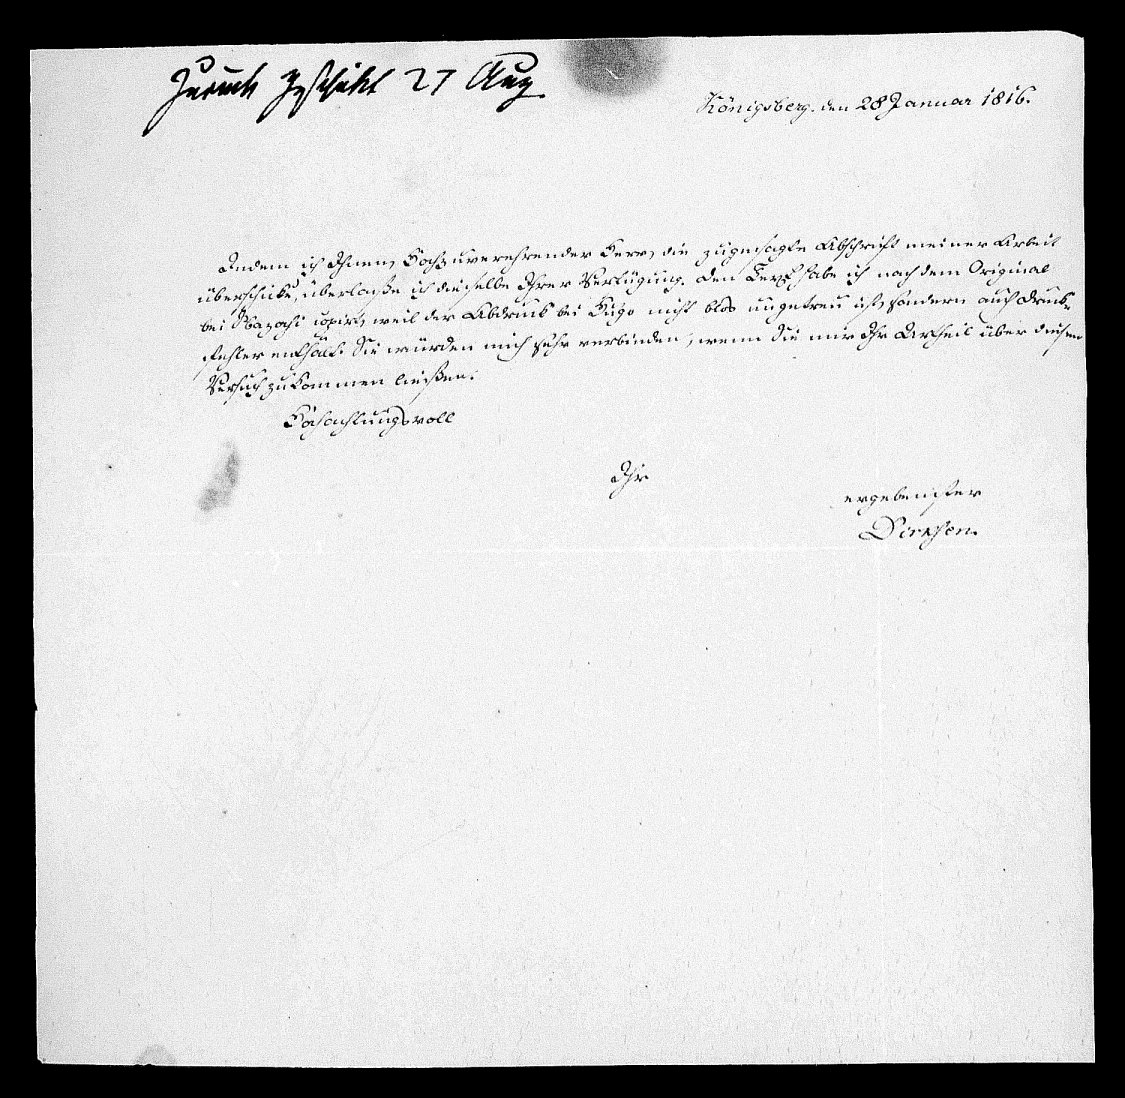 Zurück geschickt 27 Aug
Königsberg. den 28 Januar 1816.
Indem ich Ihnen, Hochzuverehrender Herr, die zugesagte Abschrift meiner Arbeit
überschicke, überlaße ich dieselbe Ihrer Verfügung. Den Text habe ich nach dem Original
bei copirt, weil der Abdruck bei Hugo nicht blos ungetreu ist, sondern auch Druck-
fehler enthält. Sie würden mich sehr verbinden, wenn Sie mir Ihr Urtheil über diesen
Versuch zukommen ließen.
Hochachtungsvoll
Ihr
ergebenster
Dirksen.